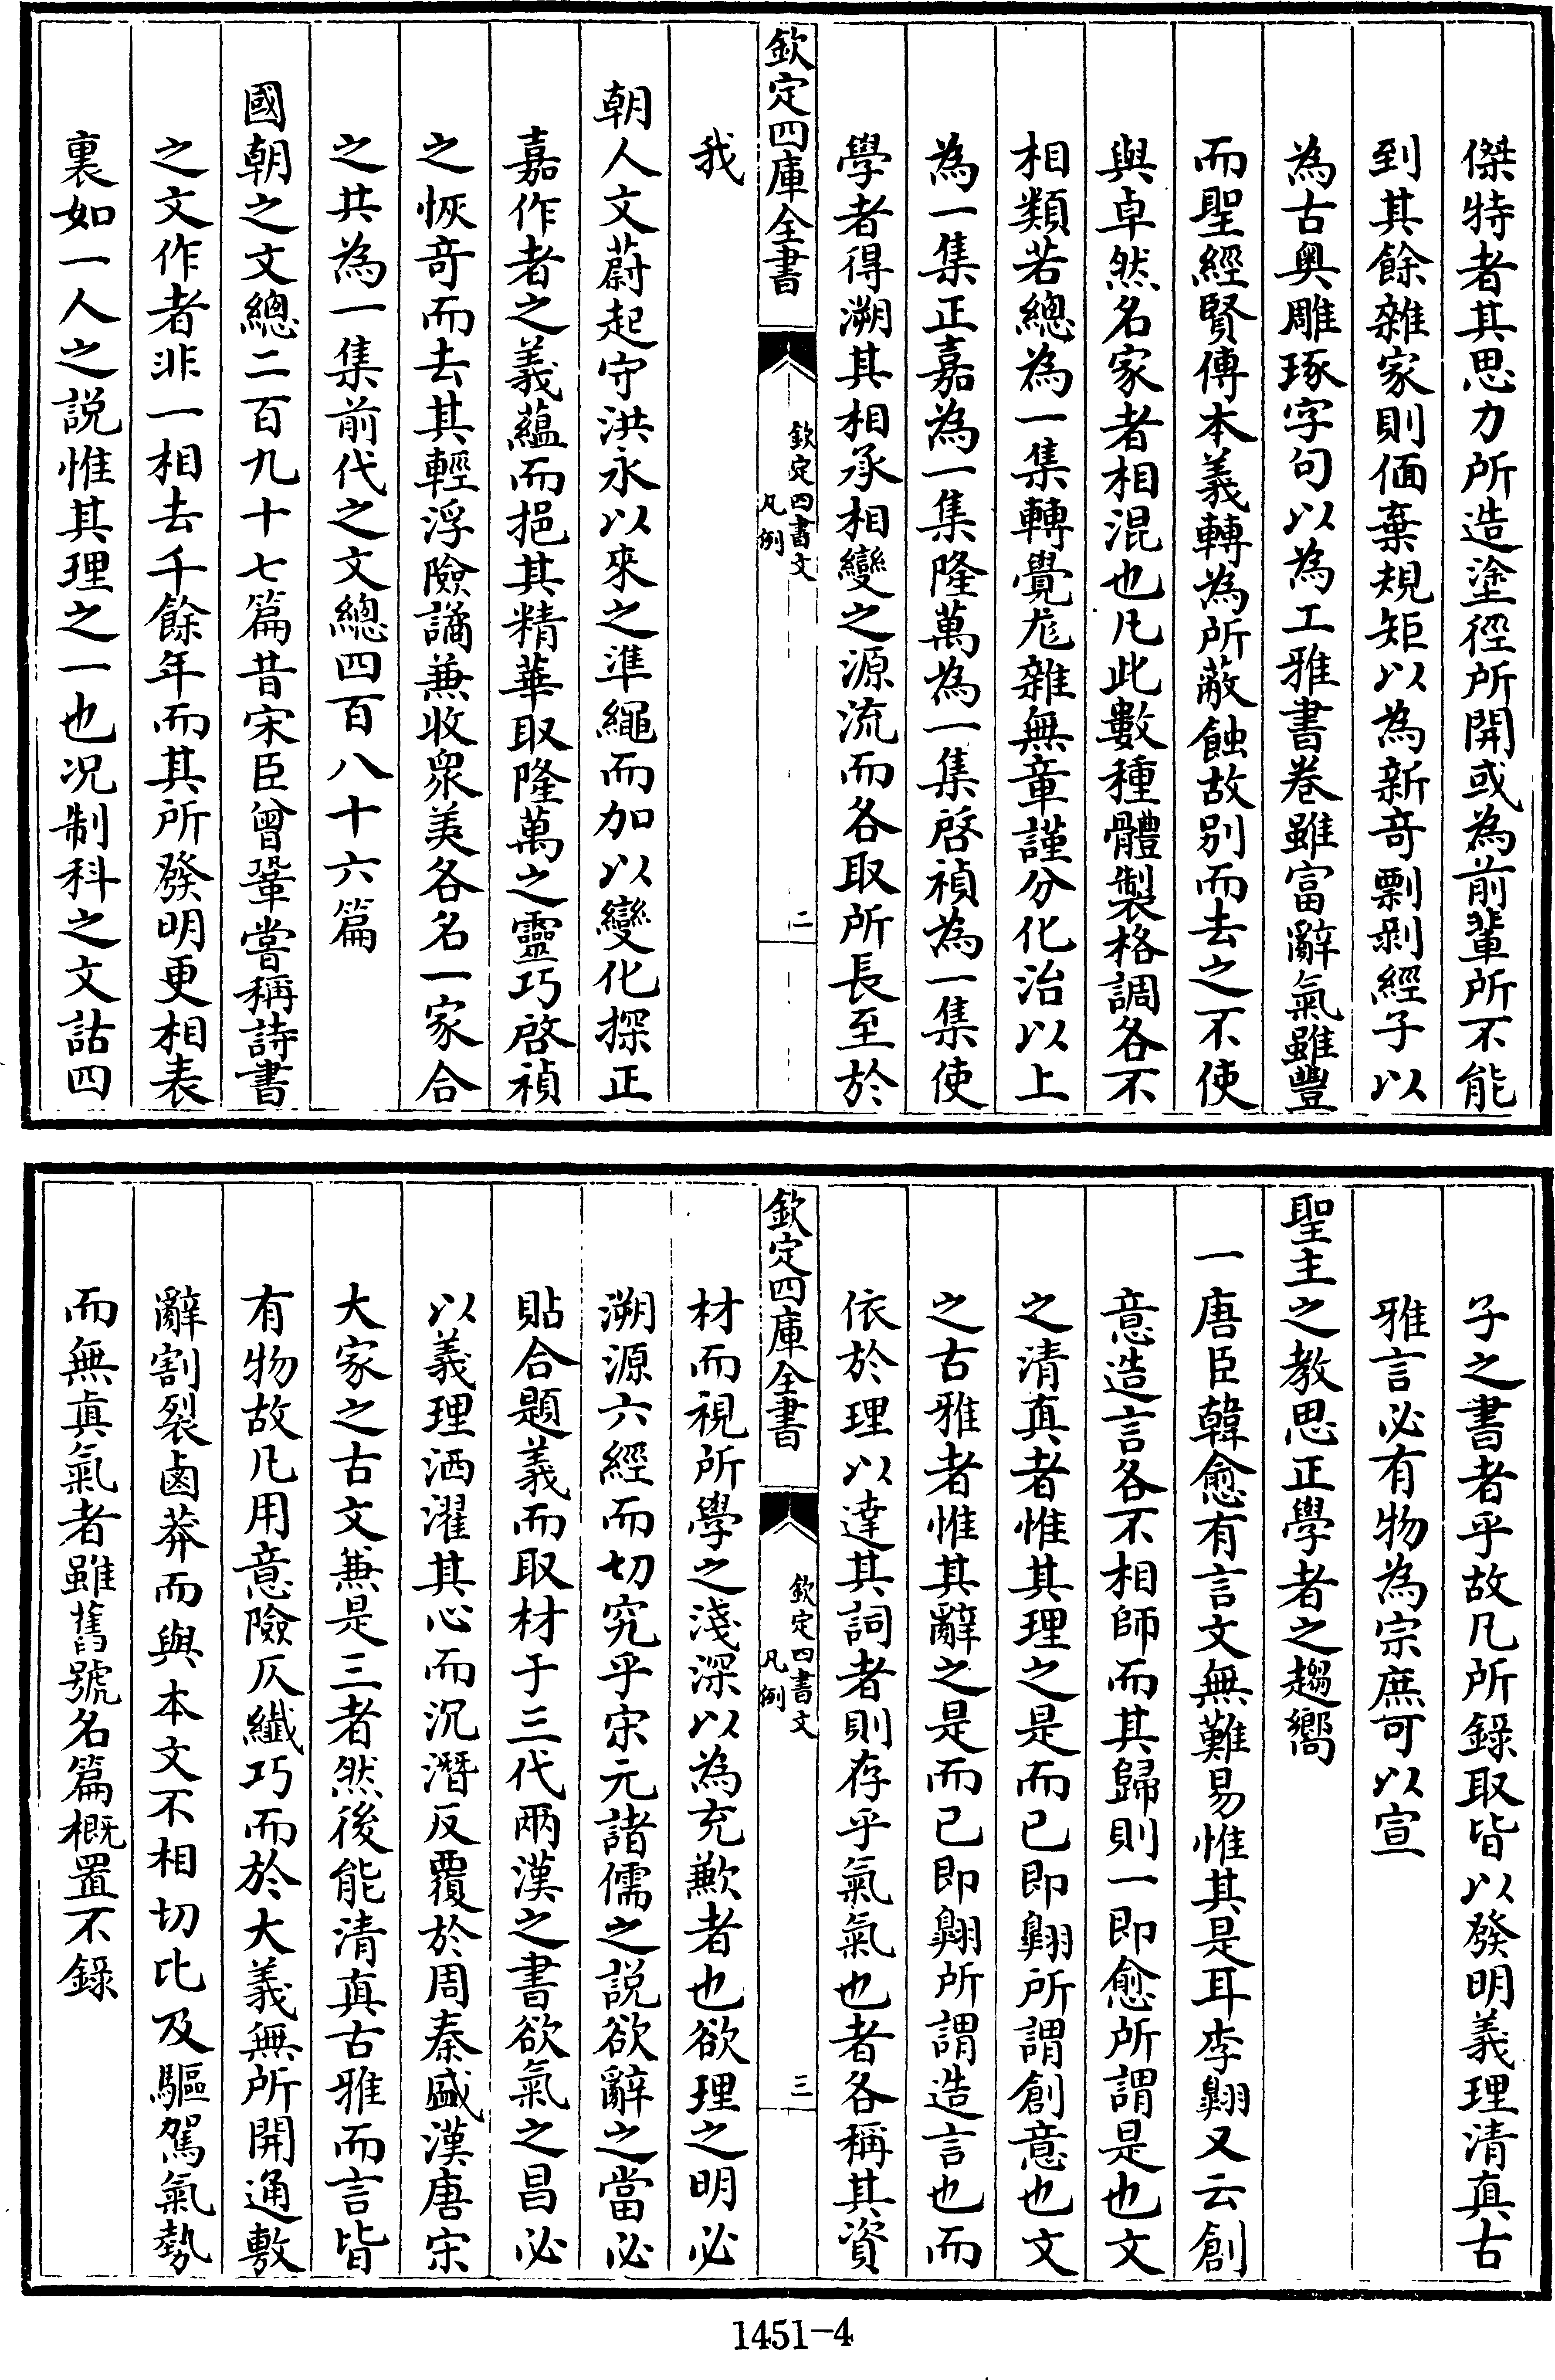 傑特者其思力所造塗徑所開或為前輩所不能
到其餘雜家則偭棄規矩以為新奇剽剥經子以
為古奥雕琢字句以為工雅書卷雖富辭氣雖豐
而聖經賢傳本義轉為所蔽蝕故别而去之不使
與卓然名家者相混也凡此數種體製格調各不
相類若總為一集轉覺厖雜無章謹分化治以上
為一集正嘉為一集隆萬為一集啓禎為一集使
學者得溯其相承相變之源流而各取所長至於
欽定四庫全書
欽定四書文
凡例
二
我
朝人文蔚起守洪永以來之準繩而加以變化探正
嘉作者之義蘊而挹其精華取隆萬之靈巧啓禎
之恢奇而去其輕浮險譎兼收衆美各名一家合
之共為一集前代之文總四百八十六篇
國朝之文總二百九十七篇昔宋臣曾鞏嘗稱詩書
之文作者非一相去千餘年而其所發明更相表
裏如一人之説惟其理之一也况制科之文詁四
子之書者乎故凡所錄取皆以發明義理清真古
雅言必有物為宗庶可以宣
聖主之教思正學者之趨嚮
一唐臣韓愈有言文無難易惟其是耳李翺又云創
意造言各不相師而其歸則一即愈所謂是也文
之清真者惟其理之是而已即翺所謂創意也文
之古雅者惟其辭之是而已即翺所謂造言也而
依於理以達其詞者則存乎氣氣也者各稱其資
欽定四庫全書
欽定四書文
凡例
三
材而視所學之淺深以為充歉者也欲理之明必
溯源六經而切究乎宋元諸儒之説欲辭之當必
貼合題義而取材于三代兩漢之書欲氣之昌必
以義理洒濯其心而沉潛反覆於周秦盛漢唐宋
大家之古文兼是三者然後能清真古雅而言皆
有物故凡用意險仄纖巧而於大義無所開通敷
辭割裂鹵莽而與本文不相切比及驅駕氣勢
而無真氣者雖舊號名篇概置不錄
1451-4